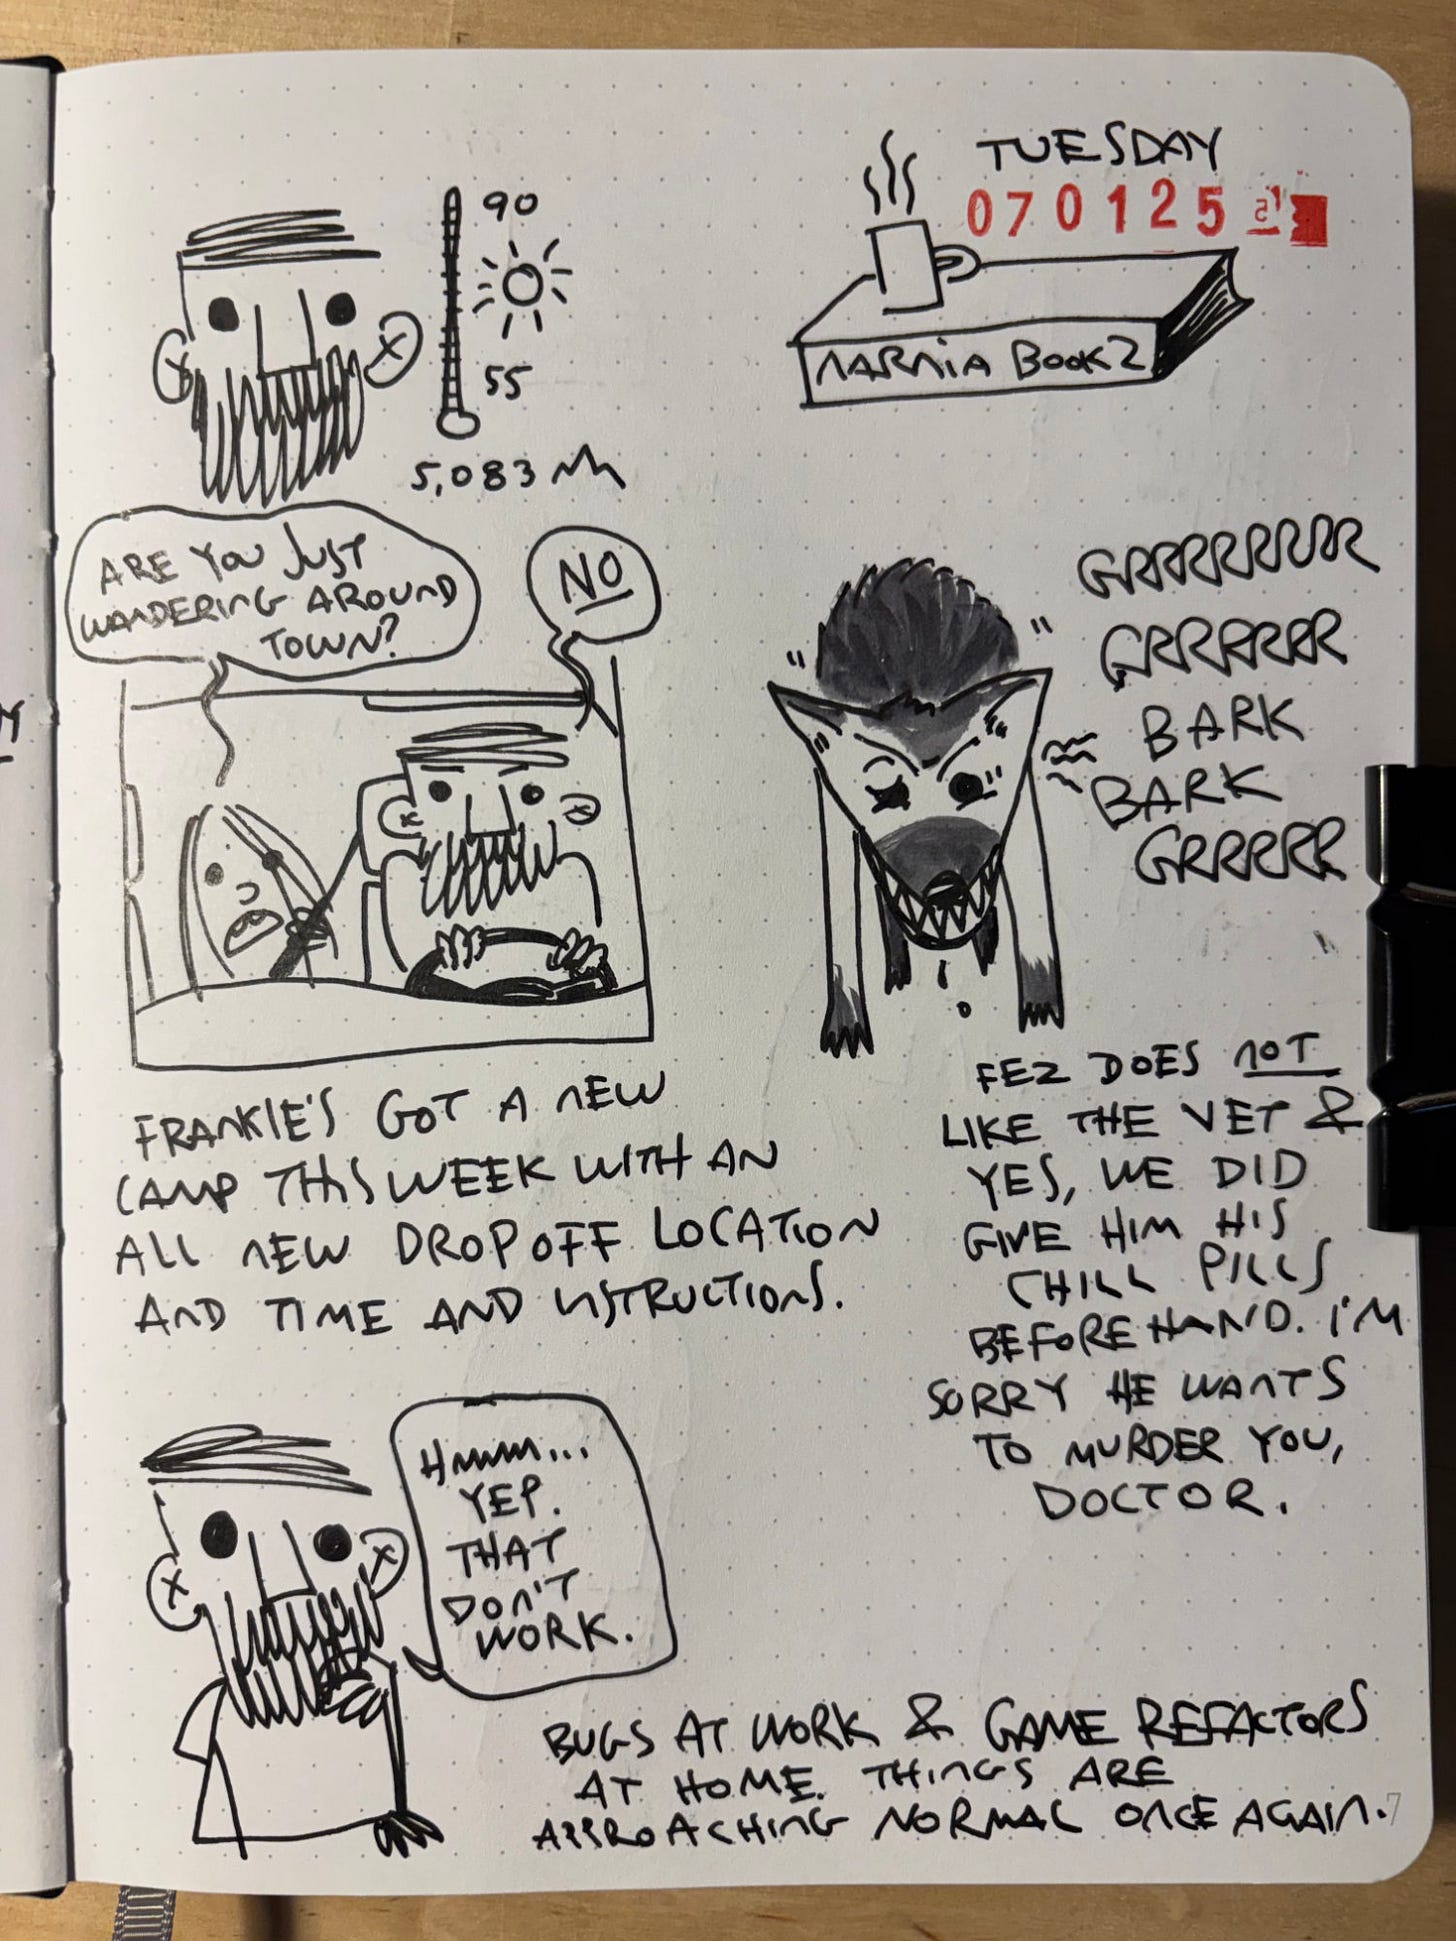 TUESDAY
070125
90
55
5,083
NARNIA BOOK 2
ARE YOU JUST
WANDERING AROUND
TOWN?
NO
FRANKIE'S GOT A NEW
CAMP THIS WEEK WITH AN
ALL NEW DROP OFF LOCATION
AND TIME AND INSTRUCTIONS.
GRRRRRRRR
GRRRRRRR
BARK
BARK
GRRRRR
FEZ DOES NOT
LIKE THE VET &
YES, WE DID
GIVE HIM HIS
CHILL PILLS
BEFOREHAND. I'M
SORRY HE WANTS
TO MURDER YOU,
DOCTOR.
HMMM...
YEP.
THAT
DON'T
WORK.
BUGS AT WORK & GAME REFACTORS
AT HOME. THINGS ARE
APPROACHING NORMAL ONCE AGAIN.
7